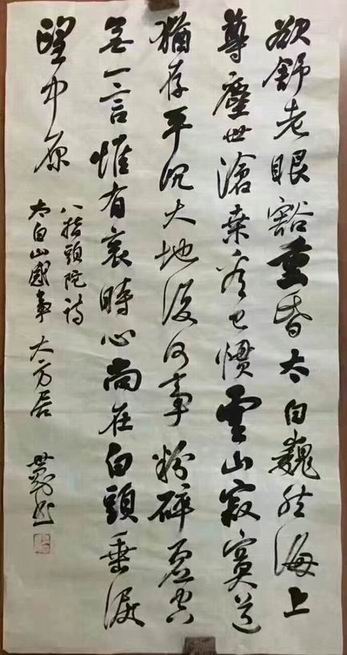 欲舒老眼豁重昏太白巍然海上
尊塵世滄桑看已慣雲山寂寞道
猶存平沉大地復何事粉碎虛空
無一言惟有哀時心尚在白頭垂淚
望中原
八指頭陀詩
太白山感事 大方居